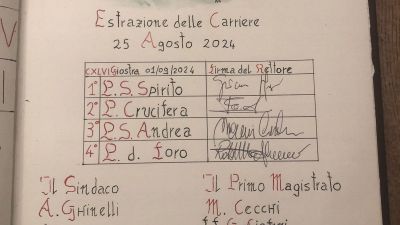 Estrazione delle Carriere
25 Agosto 2024
CXLVI Giostra 01/09/2024 Firma del Rettore
1° P. S. Spirito
2° P. Crucifera
3° P. S. Andrea
4° P. d. Foro
Il Sindaco Il Primo Magistrato
A. Ghinelli M. Cecchi